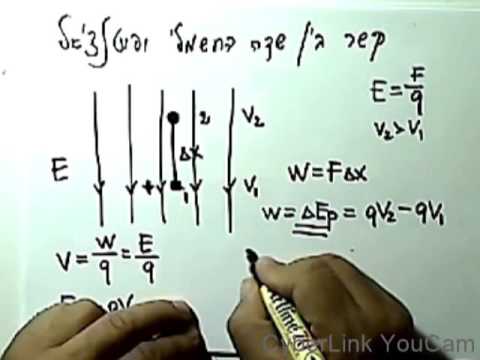 קשר בין שדה החשמלי ופוטנציאל
E = F/q
V₂ > V₁
2 V₂
Δx
E
+ 1 V₁
W = FΔx
W = ΔEp = qV₂ - qV₁
V = W/q = E/q
CyberLink YouCam